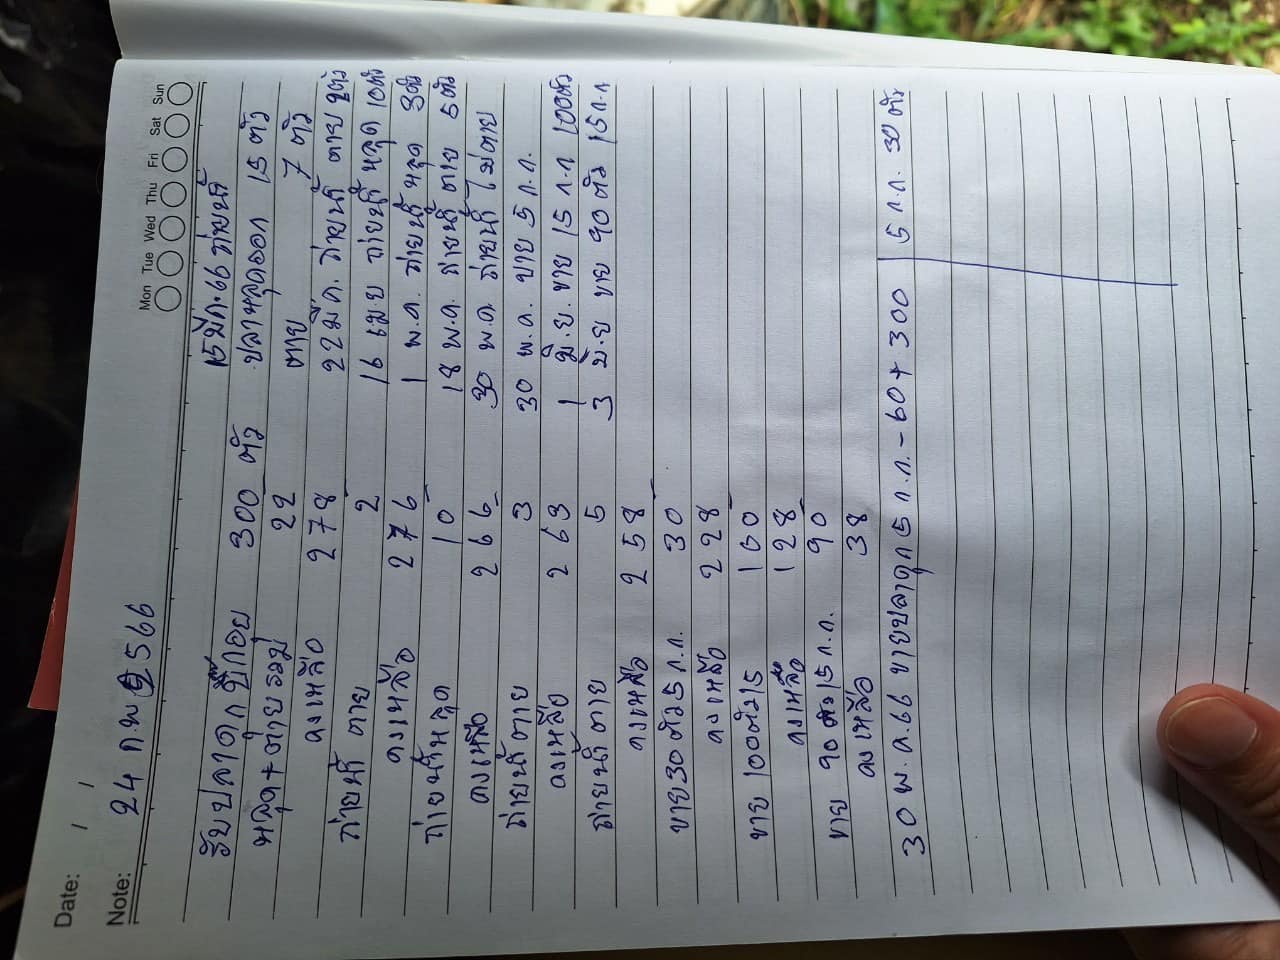 Date: / /
Mon Tue Wed Thu Fri Sat Sun
Note: 24 ก.พ 2566
15 มีค.66 ถ่ายน้ำ
รับปลาดุกบิ๊กอุย 300 ตัว ปลาหลุดออก 15 ตัว
หลุด+ตายรวม 22 ตาย 7 ตัว
คงเหลือ 278 22 มี.ค. ถ่ายน้ำ ตาย 2ตัว
ถ่ายน้ำ ตาย 2 16 เมย ถ่ายน้ำ หลุด 10ตัว
คงเหลือ 276 1 พ.ค. ถ่ายน้ำ หลุด 3ตัว
ถ่ายน้ำหลุด 10 18 พ.ค. ถ่ายน้ำ ตาย 5ตัว
คงเหลือ 266 30 พ.ค. ถ่ายน้ำ ไม่ตาย
ถ่ายน้ำตาย 3 30 พ.ค. ขาย 5 ก.ก.
คงเหลือ 263 1 มิ.ย. ขาย 15 ก.ก 100ตัว
ถ่ายน้ำตาย 5 3 มิ.ย ขาย 90 ตัว 15 ก.ก
คงเหลือ 258
ขาย 30 ตัว 5 ก.ก. 30
คงเหลือ 228
ขาย 100ตัว 15 100
คงเหลือ 128
ขาย 90 ตัว 15 ก.ก. 90
คงเหลือ 38
30 พ.ค.66 ขายปลาดุก 5 ก.ก. - 60 + 300 5 ก.ก. 30 ตัว